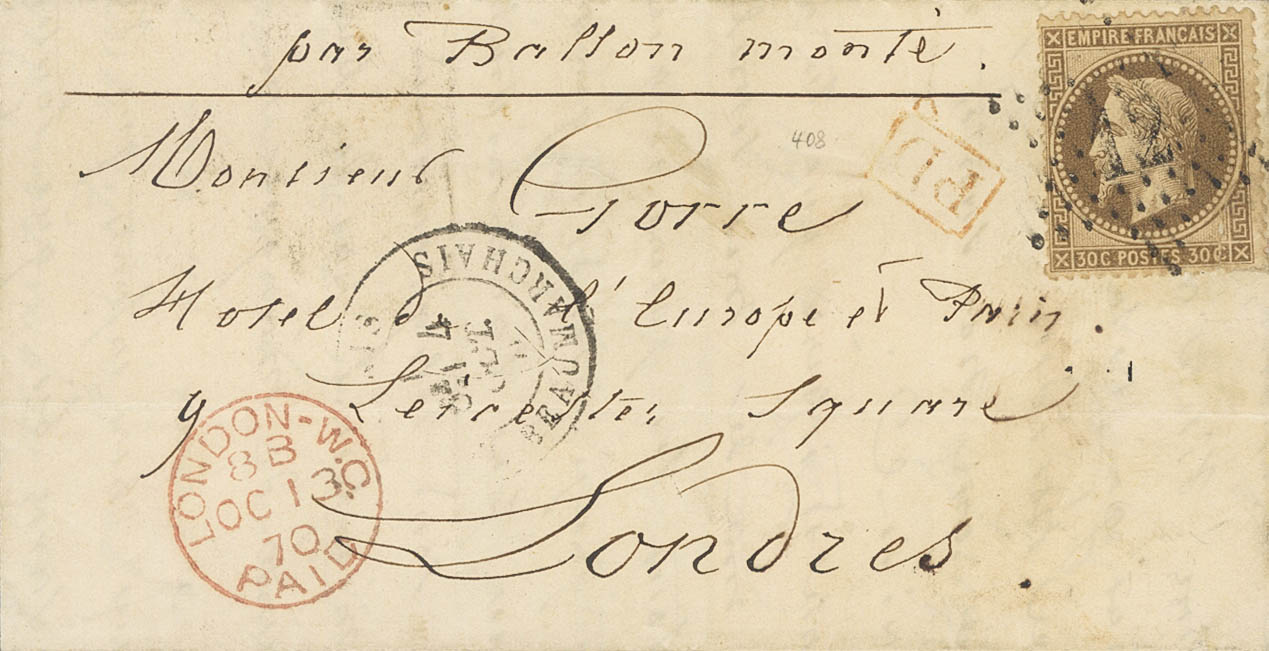 par Ballon monté.
EMPIRE FRANCAIS
12
30C POSTES 30C
408
PD
Monsieur Gorre
Hotel de l'Europe et Paris.
9 Leicester Square
Londres.
BEAUMARCHAIS
OCT.
LONDON-W.C.
8B
OC 13
70
PAID